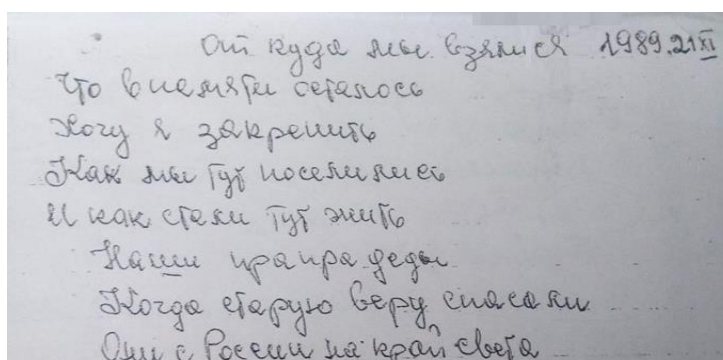 От куда мы взялися 1989.21XI
Что в памяти осталось
Хочу я закрепить
Как мы тут поселились
И как стали тут жить
Наши пра пра деды
Когда старую веру спасали
Они с России на край света